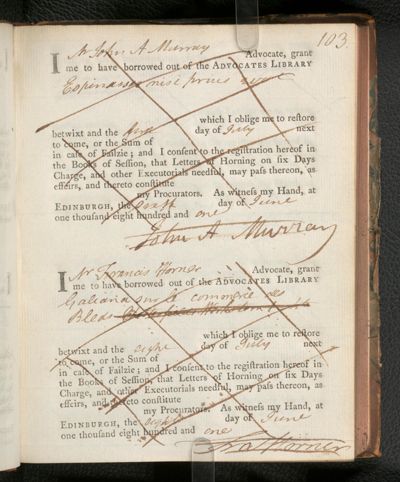 103.
I Mr John A Murray Advocate, grant
me to have borrowed out of the ADVOCATES LIBRARY
Espinasses nisi prius
which I oblige me to reſtore
betwixt and the first day of July next
to come, or the Sum of
in caſe of Failzie; and I conſent to the regiſtration hereof in
the Books of Seſſion, that Letters of Horning on ſix Days
Charge, and other Executorials needful, may paſs thereon, as
effeirs, and thereto conſtitute
my Procurators. As witneſs my Hand, at
EDINBURGH, the day of June
one thouſand eight hundred and one
John A Murray
I Mr Francis Horner Advocate, grant
me to have borrowed out of the ADVOCATES LIBRARY
Galiani sur le commerce des
Bleds
which I oblige me to reſtore
betwixt and the eight day of July next
to come, or the Sum of
in caſe of Failzie; and I conſent to the regiſtration hereof in
the Books of Seſſion, that Letters of Horning on ſix Days
Charge, and other Executorials needful, may paſs thereon, as
effeirs, and thereto conſtitute
my Procurators. As witneſs my Hand, at
EDINBURGH, the eight day of June
one thouſand eight hundred and one
Fra: Horner